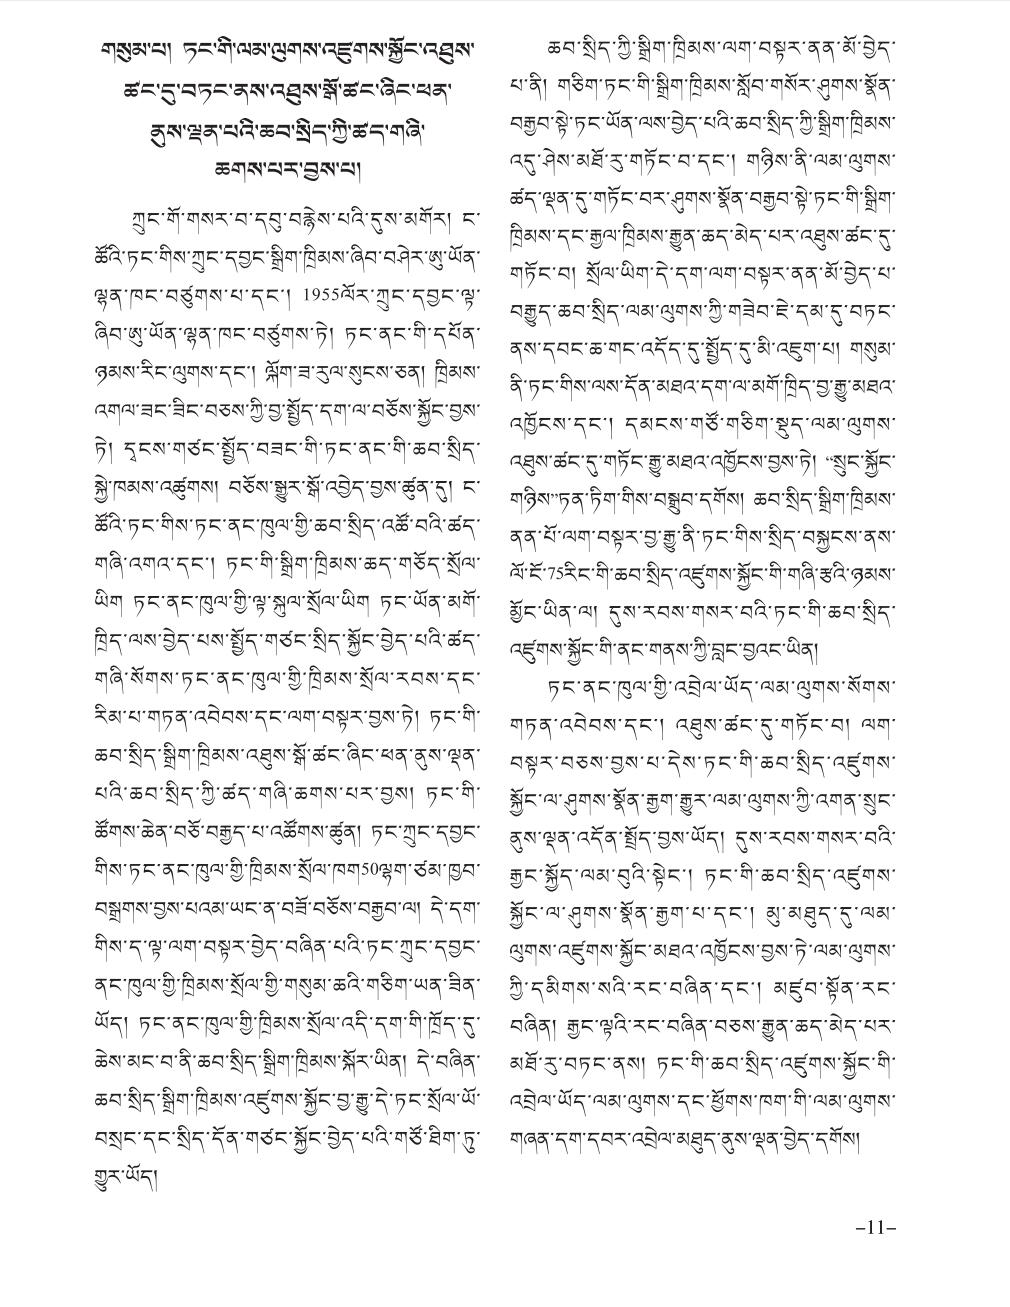 གསུམ་པ། ཏང་གི་ལམ་ལུགས་འཛུགས་སྐྱོང་འཐུས་
ཚང་དུ་བཏང་ནས་འཐུས་སྒོ་ཚང་ཞིང་ཕན་
ནུས་ལྡན་པའི་ཆབ་སྲིད་ཀྱི་ཚད་གཞི་
ཆགས་པར་བྱས་པ།
ཀྲུང་གོ་གསར་བ་དབུ་བརྙེས་པའི་དུས་མགོར། ང་
ཚོའི་ཏང་གིས་ཀྲུང་དབྱང་སྒྲིག་ཁྲིམས་ཞིབ་བཤེར་ཨུ་ཡོན་
ལྷན་ཁང་བཙུགས་པ་དང་། 1955ལོར་ཀྲུང་དབྱང་ལྟ་
ཞིབ་ཨུ་ཡོན་ལྷན་ཁང་བཙུགས་ཏེ། ཏང་ནང་གི་དཔོན་
ཉམས་རིང་ལུགས་དང་། ལྐོག་ཟ་རུལ་སུངས་ཅན། ཁྲིམས་
འགལ་ཟང་ཟིང་བཅས་ཀྱི་བྱ་སྤྱོད་དག་ལ་བཅོས་སྐྱོང་བྱས་
ཏེ། དྭངས་གཙང་སྤྱོད་བཟང་གི་ཏང་ནང་གི་ཆབ་སྲིད་
སྐྱེ་ཁམས་འཚུགས། བཅོས་སྒྱུར་སྒོ་འབྱེད་བྱས་ཚུན་དུ། ང་
ཚོའི་ཏང་གིས་ཏང་ནང་ཁུལ་གྱི་ཆབ་སྲིད་འཚོ་བའི་ཚད་
གཞི་འགའ་དང་། ཏང་གི་སྒྲིག་ཁྲིམས་ཆད་གཅོད་སྲོལ་
ཡིག ཏང་ནང་ཁུལ་གྱི་ལྟ་སྐུལ་སྲོལ་ཡིག ཏང་ཡོན་མགོ་
ཁྲིད་ལས་བྱེད་པས་སྤྱོད་གཙང་སྲིད་སྐྱོང་བྱེད་པའི་ཚད་
གཞི་སོགས་ཏང་ནང་ཁུལ་གྱི་ཁྲིམས་སྲོལ་རབས་དང་
རིམ་པ་གཏན་འབེབས་དང་ལག་བསྟར་བྱས་ཏེ། ཏང་གི་
ཆབ་སྲིད་སྒྲིག་ཁྲིམས་འཐུས་སྒོ་ཚང་ཞིང་ཕན་ནུས་ལྡན་
པའི་ཆབ་སྲིད་ཀྱི་ཚད་གཞི་ཆགས་པར་བྱས། ཏང་གི་
ཚོགས་ཆེན་བཅོ་བརྒྱད་པ་འཚོགས་ཚུན། ཏང་ཀྲུང་དབྱང་
གིས་ཏང་ནང་ཁུལ་གྱི་ཁྲིམས་སྲོལ་ཁག50ལྷག་ཙམ་ཁྱབ་
བསྒྲགས་བྱས་པའམ་ཡང་ན་བཟོ་བཅོས་བརྒྱབ་ལ། དེ་དག་
གིས་ད་ལྟ་ལག་བསྟར་བྱེད་བཞིན་པའི་ཏང་ཀྲུང་དབྱང་
ནང་ཁུལ་གྱི་ཁྲིམས་སྲོལ་གྱི་གསུམ་ཆའི་གཅིག་ཡན་ཟིན་
ཡོད། ཏང་ནང་ཁུལ་གྱི་ཁྲིམས་སྲོལ་འདི་དག་གི་ཁྲོད་དུ་
ཆེས་མང་བ་ནི་ཆབ་སྲིད་སྒྲིག་ཁྲིམས་སྐོར་ཡིན། དེ་བཞིན་
ཆབ་སྲིད་སྒྲིག་ཁྲིམས་འཛུགས་སྐྱོང་བྱ་རྒྱུ་དེ་ཏང་སྲོལ་ཡོ་
བསྲང་དང་སྲིད་དོན་གཙང་སྐྱོང་བྱེད་པའི་གཙོ་ཐིག་ཏུ་
གྱུར་ཡོད།
ཆབ་སྲིད་ཀྱི་སྒྲིག་ཁྲིམས་ལག་བསྟར་ནན་མོ་བྱེད་
པ་ནི། གཅིག་ཏང་གི་སྒྲིག་ཁྲིམས་སློབ་གསོར་ཤུགས་སྣོན་
བརྒྱབ་སྟེ་ཏང་ཡོན་ལས་བྱེད་པའི་ཆབ་སྲིད་ཀྱི་སྒྲིག་ཁྲིམས་
འདུ་ཤེས་མཐོ་རུ་གཏོང་བ་དང་། གཉིས་ནི་ལམ་ལུགས་
ཚད་ལྡན་དུ་གཏོང་བར་ཤུགས་སྣོན་བརྒྱབ་སྟེ་ཏང་གི་སྒྲིག་
ཁྲིམས་དང་རྒྱལ་ཁྲིམས་རྒྱུན་ཆད་མེད་པར་འཐུས་ཚང་དུ་
གཏོང་བ། སྲོལ་ཡིག་དེ་དག་ལག་བསྟར་ནན་མོ་བྱེད་པ་
བརྒྱུད་ཆབ་སྲིད་ལམ་ལུགས་ཀྱི་གཟེབ་རྗེ་དམ་དུ་བཏང་
ནས་དབང་ཆ་གང་འདོད་དུ་སྤྱོད་དུ་མི་འཇུག་པ། གསུམ་
ནི་ཏང་གིས་ལས་དོན་མཐའ་དག་ལ་མགོ་ཁྲིད་བྱ་རྒྱུ་མཐའ་
འཁྱོངས་དང་། དམངས་གཙོ་གཅིག་སྡུད་ལམ་ལུགས་
འཐུས་ཚང་དུ་གཏོང་རྒྱུ་མཐའ་འཁྱོངས་བྱས་ཏེ། “སྲུང་སྐྱོང་
གཉིས”ཏན་ཏིག་གིས་བསྒྲུབ་དགོས། ཆབ་སྲིད་སྒྲིག་ཁྲིམས་
ནན་པོ་ལག་བསྟར་བྱ་རྒྱུ་ནི་ཏང་གིས་སྲིད་བསྐྱངས་ནས་
ལོ་ངོ་75རིང་གི་ཆབ་སྲིད་འཛུགས་སྐྱོང་གི་གཞི་རྩའི་ཉམས་
མྱོང་ཡིན་ལ། དུས་རབས་གསར་བའི་ཏང་གི་ཆབ་སྲིད་
འཛུགས་སྐྱོང་གི་ནང་གནས་ཀྱི་བླང་བྱའང་ཡིན།
ཏང་ནང་ཁུལ་གྱི་འབྲེལ་ཡོད་ལམ་ལུགས་སོགས་
གཏན་འབེབས་དང་། འཐུས་ཚང་དུ་གཏོང་བ། ལག་
བསྟར་བཅས་བྱས་པ་དེས་ཏང་གི་ཆབ་སྲིད་འཛུགས་
སྐྱོང་ལ་ཤུགས་སྣོན་རྒྱག་རྒྱུར་ལམ་ལུགས་ཀྱི་འགན་སྲུང་
ནུས་ལྡན་འདོན་སྤྲོད་བྱས་ཡོད། དུས་རབས་གསར་བའི་
རྒྱང་སྐྱོད་ལམ་བུའི་སྟེང་། ཏང་གི་ཆབ་སྲིད་འཛུགས་
སྐྱོང་ལ་ཤུགས་སྣོན་རྒྱག་པ་དང་། མུ་མཐུད་དུ་ལམ་
ལུགས་འཛུགས་སྐྱོང་མཐའ་འཁྱོངས་བྱས་ཏེ་ལམ་ལུགས་
ཀྱི་དམིགས་སའི་རང་བཞིན་དང་། མཛུབ་སྟོན་རང་
བཞིན། རྒྱང་ལྟའི་རང་བཞིན་བཅས་རྒྱུན་ཆད་མེད་པར་
མཐོ་རུ་བཏང་ནས། ཏང་གི་ཆབ་སྲིད་འཛུགས་སྐྱོང་གི་
འབྲེལ་ཡོད་ལམ་ལུགས་དང་ཕྱོགས་ཁག་གི་ལམ་ལུགས་
གཞན་དག་དབར་འབྲེལ་མཐུད་ནུས་ལྡན་བྱེད་དགོས།
–11–